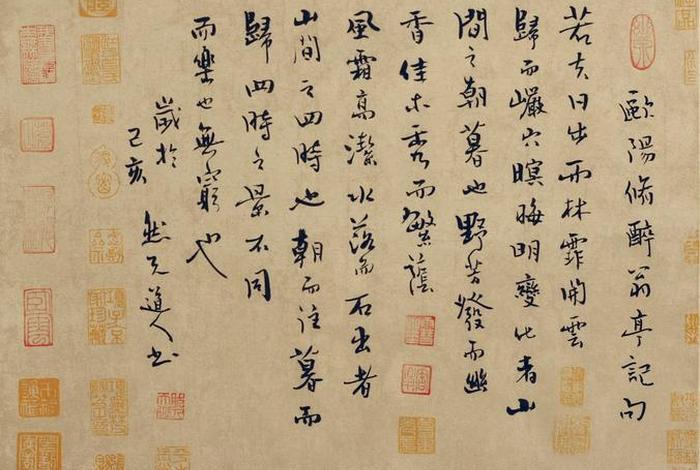 歐陽脩醉翁亭記句
若夫日出而林霏開雲
歸而巖穴暝晦明變化者山
間之朝暮也野芳發而幽
香佳木秀而繁蔭
風霜高潔水落而石出者
山間之四時也朝而往暮而
歸四時之景不同
而樂也無窮也
歲於
己亥
道人书